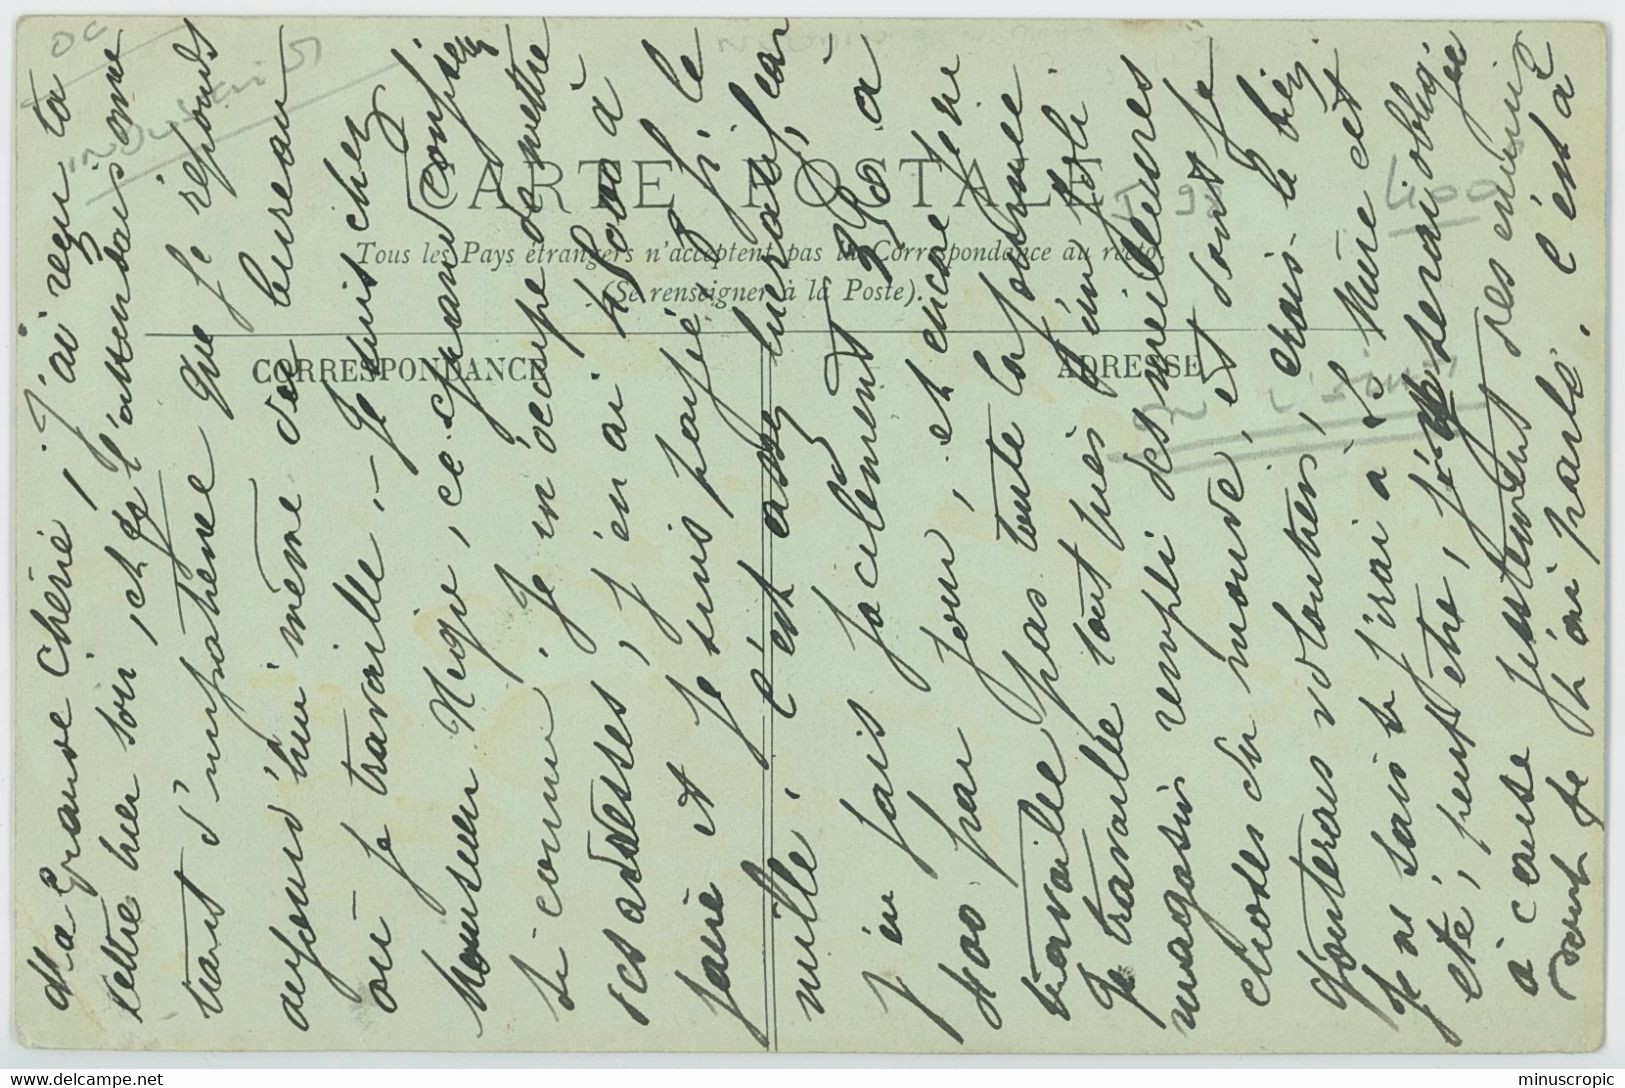 Ma Grande Chérie, J'ai reçu ta
lettre hier soir, et je l'attendais avec
tant d'impatience que je te réponds
aujourd'hui même des bureau
où je travaille, - Je suis chez
Monsieur Nique, ce grand confiseur
si connu. Je m'occupe de mettre
ses adresses, j'en ai 4 000 à
faire et je suis payée 3 f. le
mille. C'est assez lucratif car
j'en fais facilement 350 à
400 par jour, et encore je ne
travaille pas toute la journée
Je travaille tout près d'un joli
magasin rempli des meilleures
choses du monde, et dont je
goûterais volontiers, crois-le bien
Je ne sais si j'irai à la Mûre cet
été, peut être, j'y serai obligée
à cause justement des ennuis
dont je t'ai parlé. C'est à
CARTE POSTALE
Tous les Pays étrangers n'acceptent pas la Correspondance au recto.
(Se renseigner à la Poste).
CORRESPONDANCE
ADRESSE
minuscropic